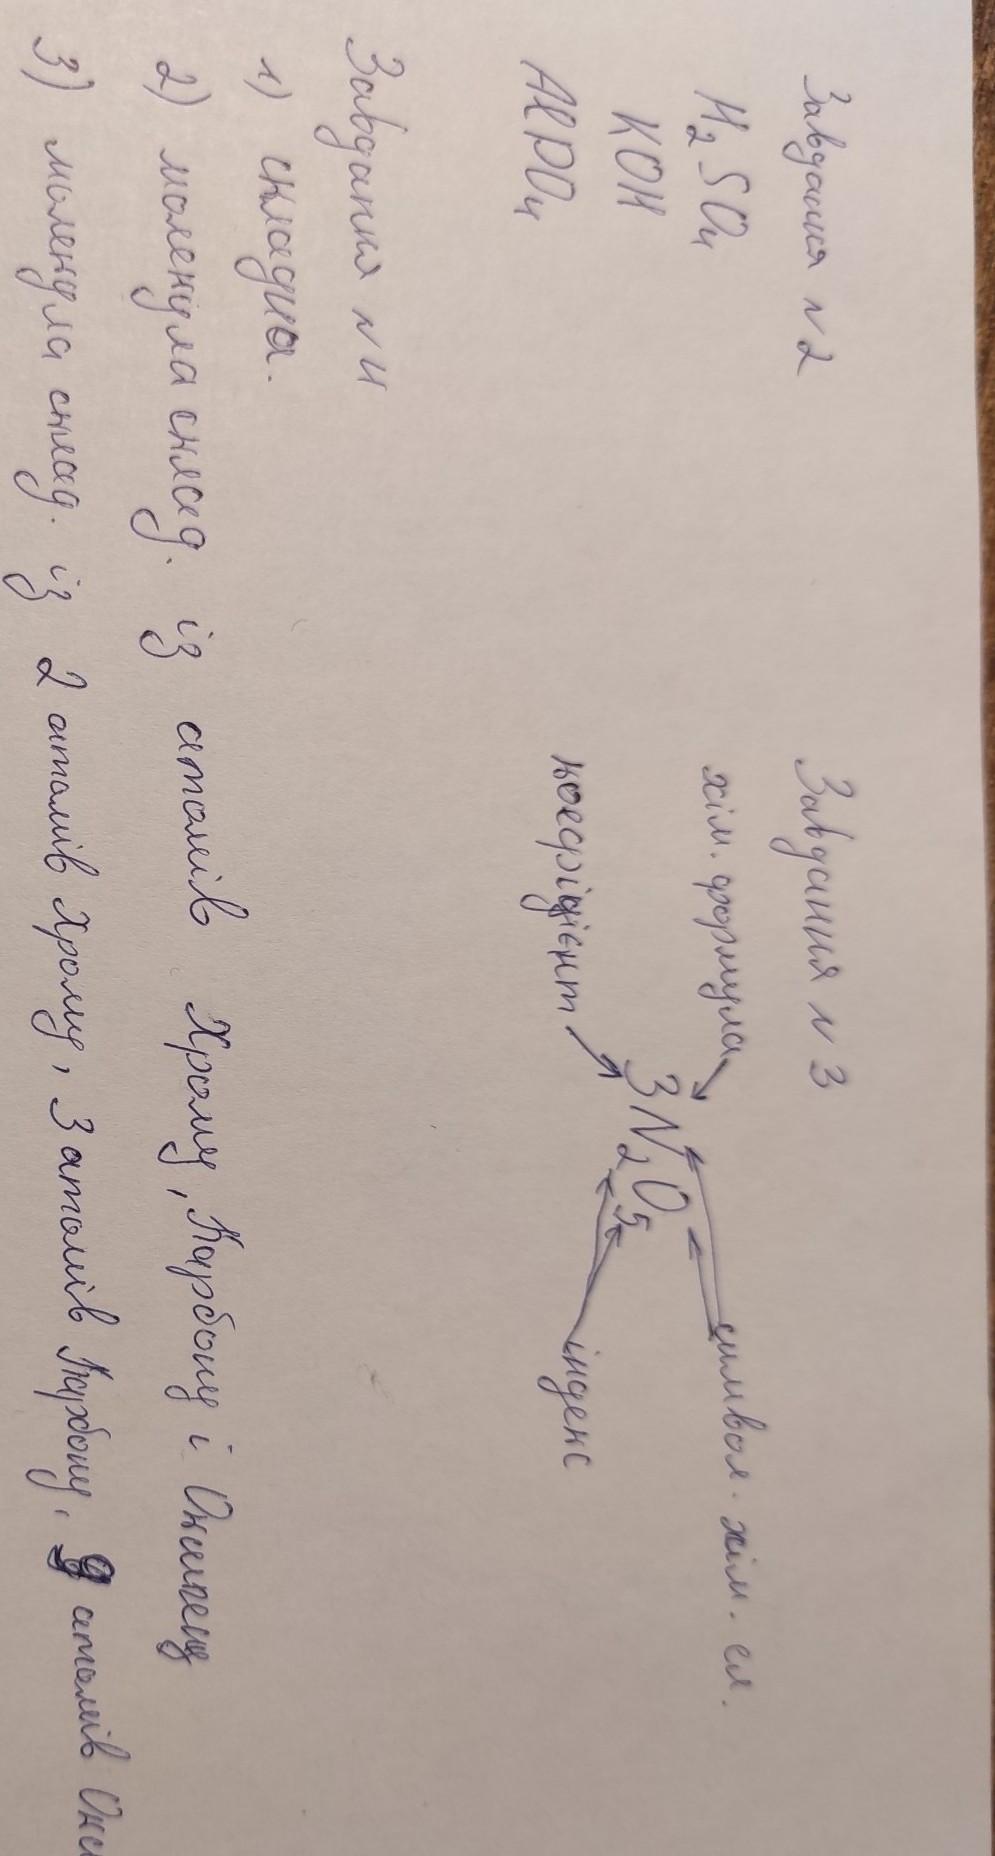 Завдання N2
H₂SO₄
KOH
AlPO₄
Завдання N3
хім. формула
символ. хім. ел.
3N₂O₅
коефіцієнт
індекс
Завдання N4
1) складна.
2) молекула склад. із атомів Хрому, Карбону і Оксигену
3) молекула склад. із 2 атомів Хрому, 3 атомів Карбону, 9 атомів Окси